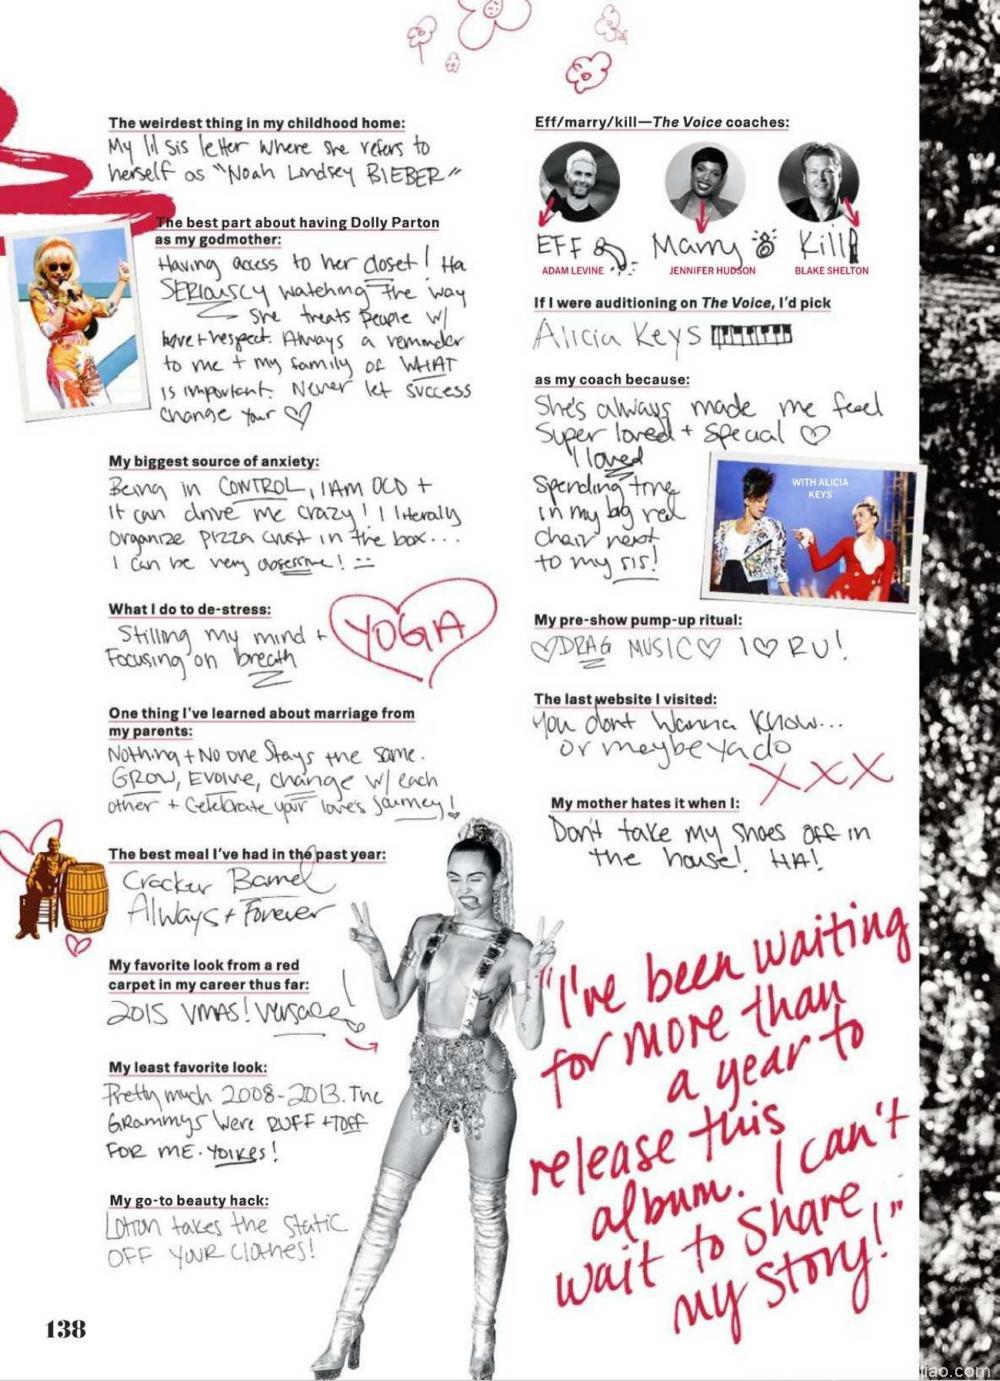 The weirdest thing in my childhood home:
My lil sis letter where she refers to
herself as "Noah Lindsey BIEBER"
The best part about having Dolly Parton
as my godmother:
Having access to her closet! Ha
SERIOUSLY watching the way
she treats people w/
love + respect. Always a reminder
to me + my family of WHAT
is important. Never let success
change your ♡
My biggest source of anxiety:
Being in CONTROL, I AM OCD +
it can drive me crazy! I literally
organize pizza crust in the box...
I can be very obsessive!
What I do to de-stress:
Stilling my mind +
Focusing on breath
YOGA
One thing I've learned about marriage from
my parents:
Nothing + No one stays the same.
GROW, EVOLVE, change w/ each
other + celebrate your love's journey!
The best meal I've had in the past year:
Cracker Barrel
Always + Forever
My favorite look from a red
carpet in my career thus far:
2015 VMAS! Versace
My least favorite look:
Pretty much 2008-2013. The
GRammys were RUFF + TUFF
FOR ME. YOIKES!
My go-to beauty hack:
Lotion takes the static
OFF YOUR clothes!
138
Eff/marry/kill—The Voice coaches:
EFF Marry Kill
ADAM LEVINE JENNIFER HUDSON BLAKE SHELTON
If I were auditioning on The Voice, I'd pick
Alicia Keys
as my coach because:
She's always made me feel
super loved + special ♡
I loved
spending time
in my big red
chair next
to my sis!
WITH ALICIA
KEYS
My pre-show pump-up ritual:
♡DRAG MUSIC♡ I ♡ RU!
The last website I visited:
You dont wanna know...
or maybe ya do
XXX
My mother hates it when I:
Don't take my shoes off in
the house! HA!
"I've been waiting
for more than
a year to
release this
album. I can't
wait to share
my story!"
iao.com